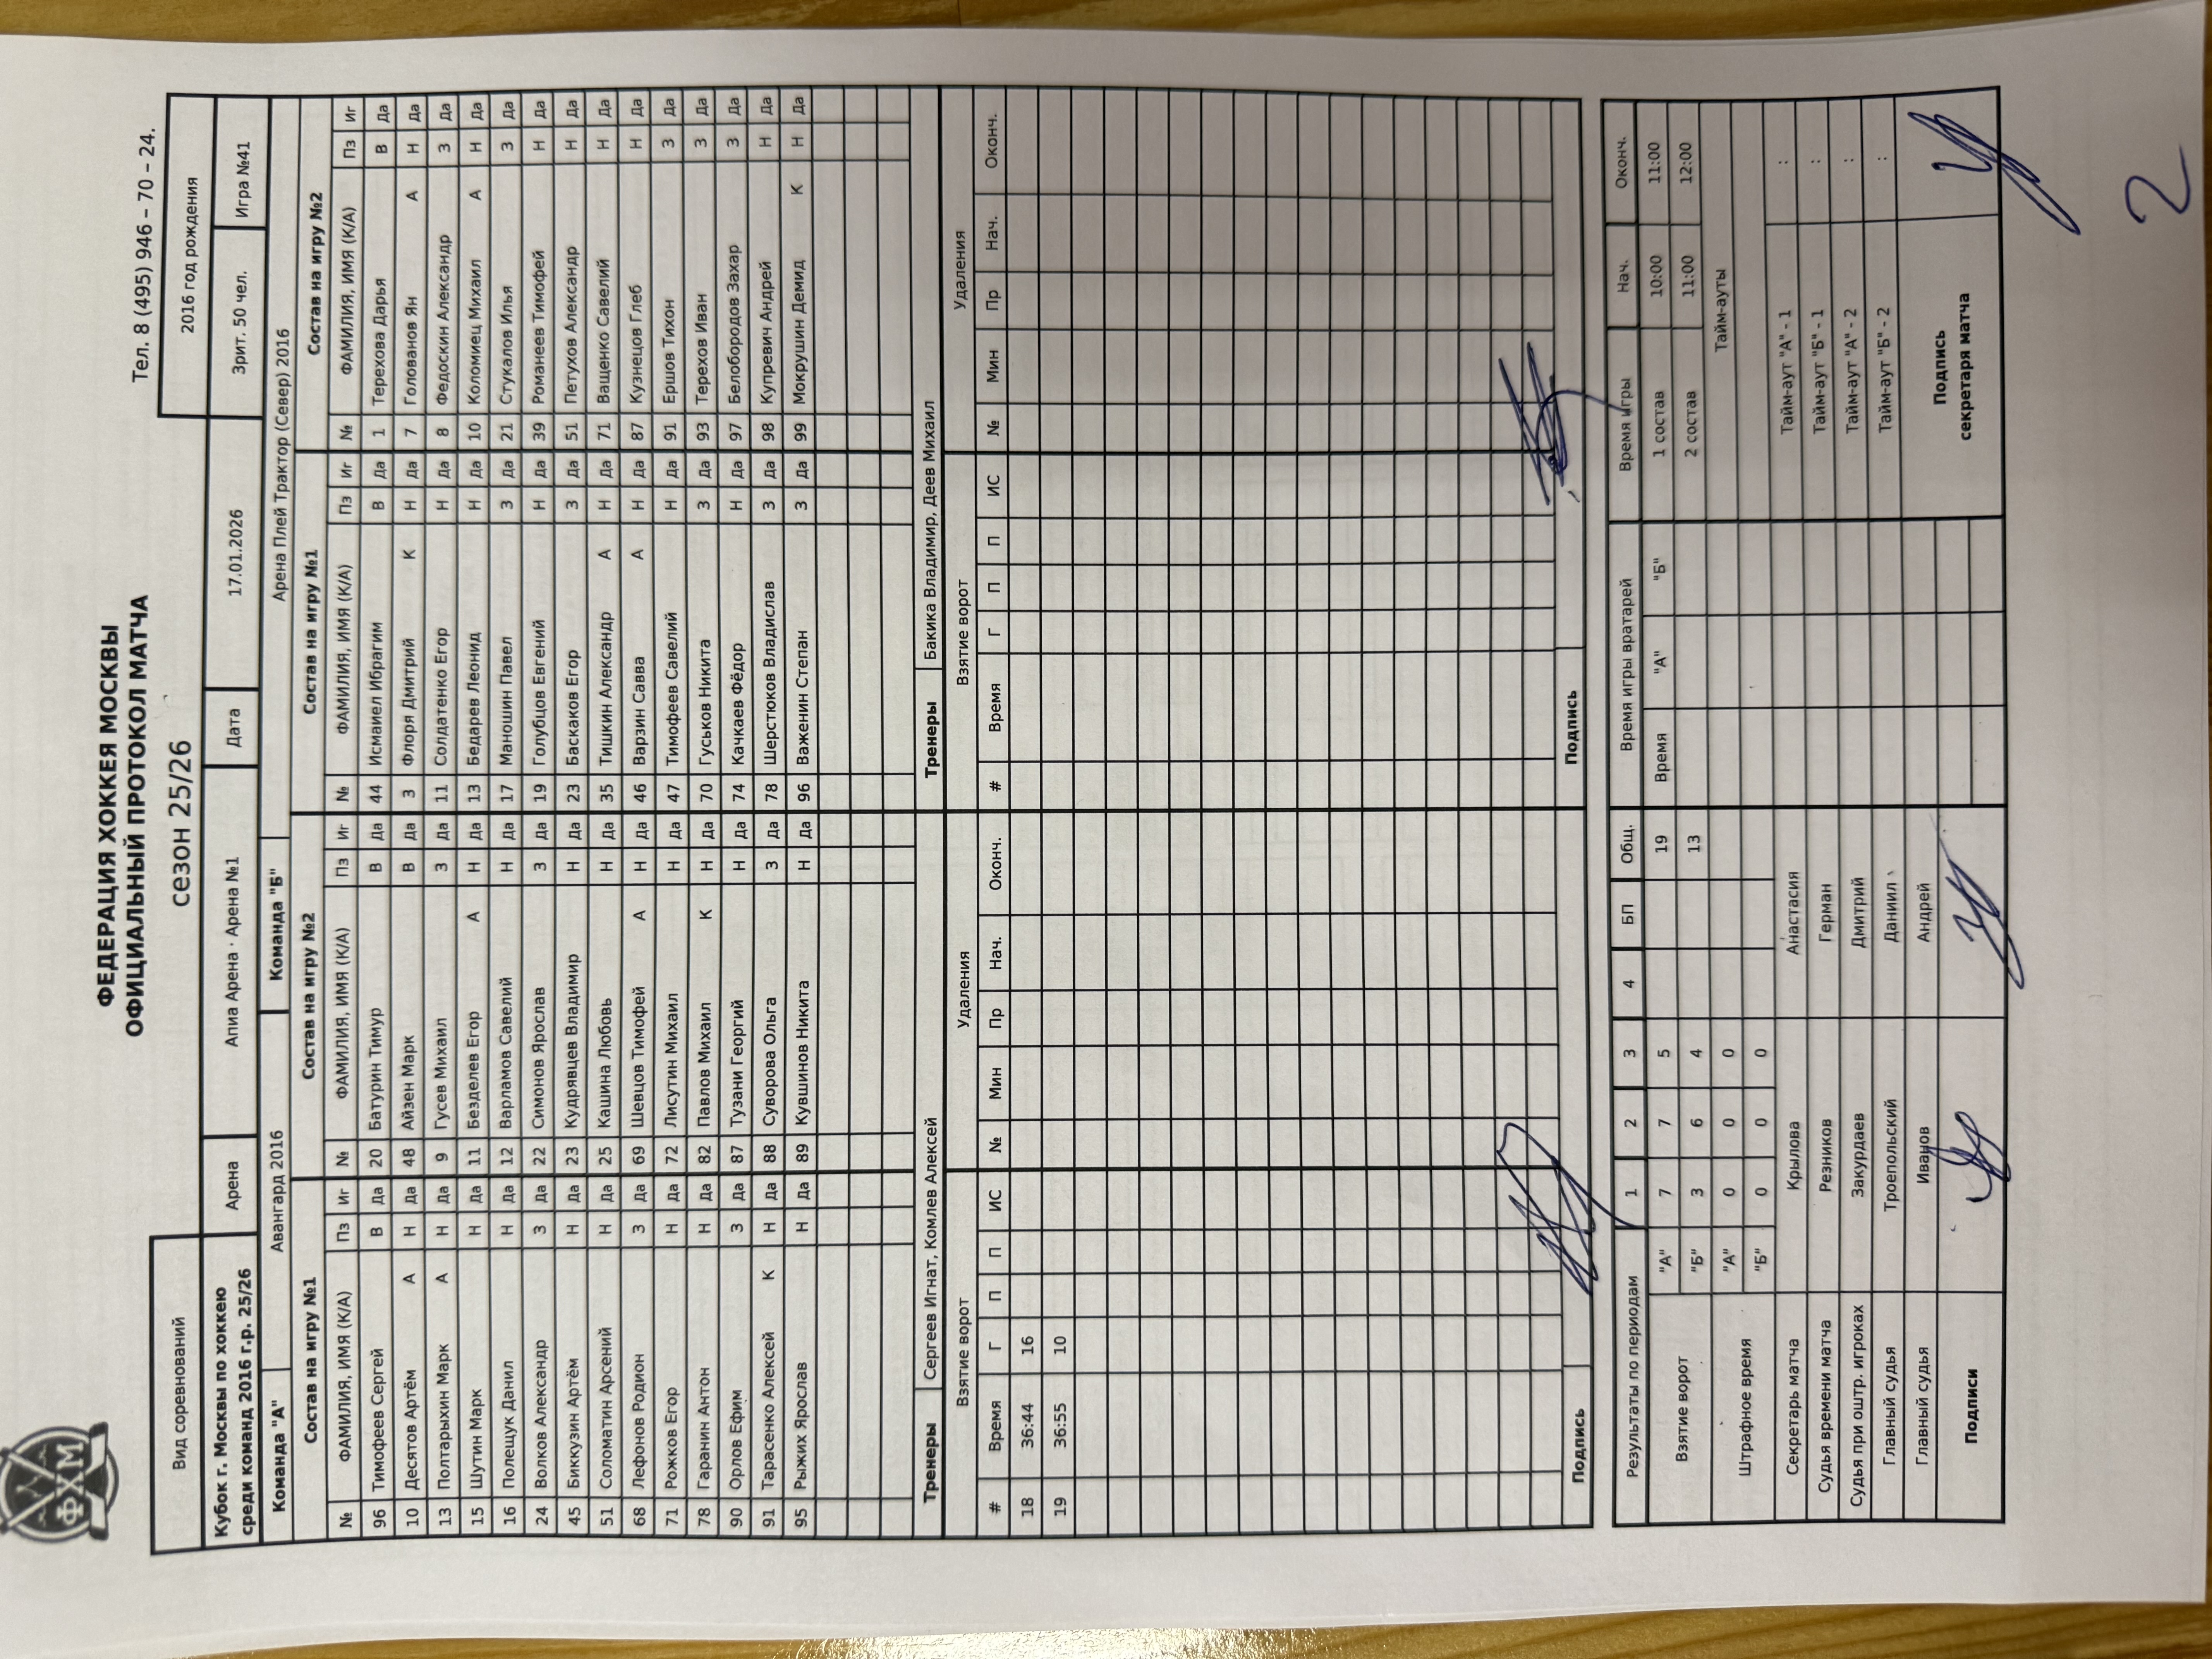 ФХМ
ФЕДЕРАЦИЯ ХОККЕЯ МОСКВЫ
ОФИЦИАЛЬНЫЙ ПРОТОКОЛ МАТЧА
сезон 25/26
Тел. 8 (495) 946 – 70 – 24.
Вид соревнований 2016 год рождения
Кубок г. Москвы по хоккею
среди команд 2016 г.р. 25/26 Арена Апиа Арена · Арена №1 Дата 17.01.2026 Зрит. 50 чел. Игра №41
Команда "А" Авангард 2016 Команда "Б" Арена Плей Трактор (Север) 2016
Состав на игру №1 Состав на игру №2 Состав на игру №1 Состав на игру №2
№ ФАМИЛИЯ, ИМЯ (К/А) Пз Иг № ФАМИЛИЯ, ИМЯ (К/А) Пз Иг № ФАМИЛИЯ, ИМЯ (К/А) Пз Иг № ФАМИЛИЯ, ИМЯ (К/А) Пз Иг
96 Тимофеев Сергей В Да 20 Батурин Тимур В Да 44 Исмаиел Ибрагим В Да 1 Терехова Дарья В Да
10 Десятов Артём А Н Да 48 Айзен Марк В Да 3 Флоря Дмитрий К Н Да 7 Голованов Ян А Н Да
13 Полтарыхин Марк А Н Да 9 Гусев Михаил З Да 11 Солдатенко Егор Н Да 8 Федоскин Александр З Да
15 Шутин Марк Н Да 11 Безделев Егор А Н Да 13 Бедарев Леонид Н Да 10 Коломиец Михаил А Н Да
16 Полещук Данил Н Да 12 Варламов Савелий Н Да 17 Маношин Павел З Да 21 Стукалов Илья З Да
24 Волков Александр З Да 22 Симонов Ярослав З Да 19 Голубцов Евгений Н Да 39 Романеев Тимофей Н Да
45 Биккузин Артём Н Да 23 Кудрявцев Владимир Н Да 23 Баскаков Егор З Да 51 Петухов Александр Н Да
51 Соломатин Арсений Н Да 25 Кашина Любовь Н Да 35 Тишкин Александр А Н Да 71 Ващенко Савелий Н Да
68 Лефонов Родион З Да 69 Шевцов Тимофей А Н Да 46 Варзин Савва А Н Да 87 Кузнецов Глеб Н Да
71 Рожков Егор Н Да 72 Лисутин Михаил Н Да 47 Тимофеев Савелий Н Да 91 Ершов Тихон З Да
78 Гаранин Антон Н Да 82 Павлов Михаил К Н Да 70 Гуськов Никита З Да 93 Терехов Иван З Да
90 Орлов Ефим З Да 87 Тузани Георгий Н Да 74 Качкаев Фёдор Н Да 97 Белобородов Захар З Да
91 Тарасенко Алексей К Н Да 88 Суворова Ольга З Да 78 Шерстюков Владислав З Да 98 Купревич Андрей Н Да
95 Рыжих Ярослав Н Да 89 Кувшинов Никита Н Да 96 Важенин Степан З Да 99 Мокрушин Демид К Н Да
Тренеры Сергеев Игнат, Комлев Алексей Тренеры Бакика Владимир, Деев Михаил
Взятие ворот Удаления Взятие ворот Удаления
# Время Г П П ИС № Мин Пр Нач. Оконч. # Время Г П П ИС № Мин Пр Нач. Оконч.
18 36:44 16
19 36:55 10
Подпись Подпись
Результаты по периодам 1 2 3 4 БП Общ. Время игры вратарей Время игры Нач. Оконч.
Взятие ворот "А" 7 7 5 19 Время "А" "Б" 1 состав 10:00 11:00
"Б" 3 6 4 13 2 состав 11:00 12:00
Штрафное время "А" 0 0 0 Тайм-ауты
"Б" 0 0 0
Секретарь матча Крылова Анастасия Тайм-аут "А" - 1 :
Судья времени матча Резников Герман Тайм-аут "Б" - 1 :
Судья при оштр. игроках Закурдаев Дмитрий Тайм-аут "А" - 2 :
Главный судья Троепольский Даниил Тайм-аут "Б" - 2 :
Главный судья Иванов Андрей
Подписи Подпись
секретаря матча
2